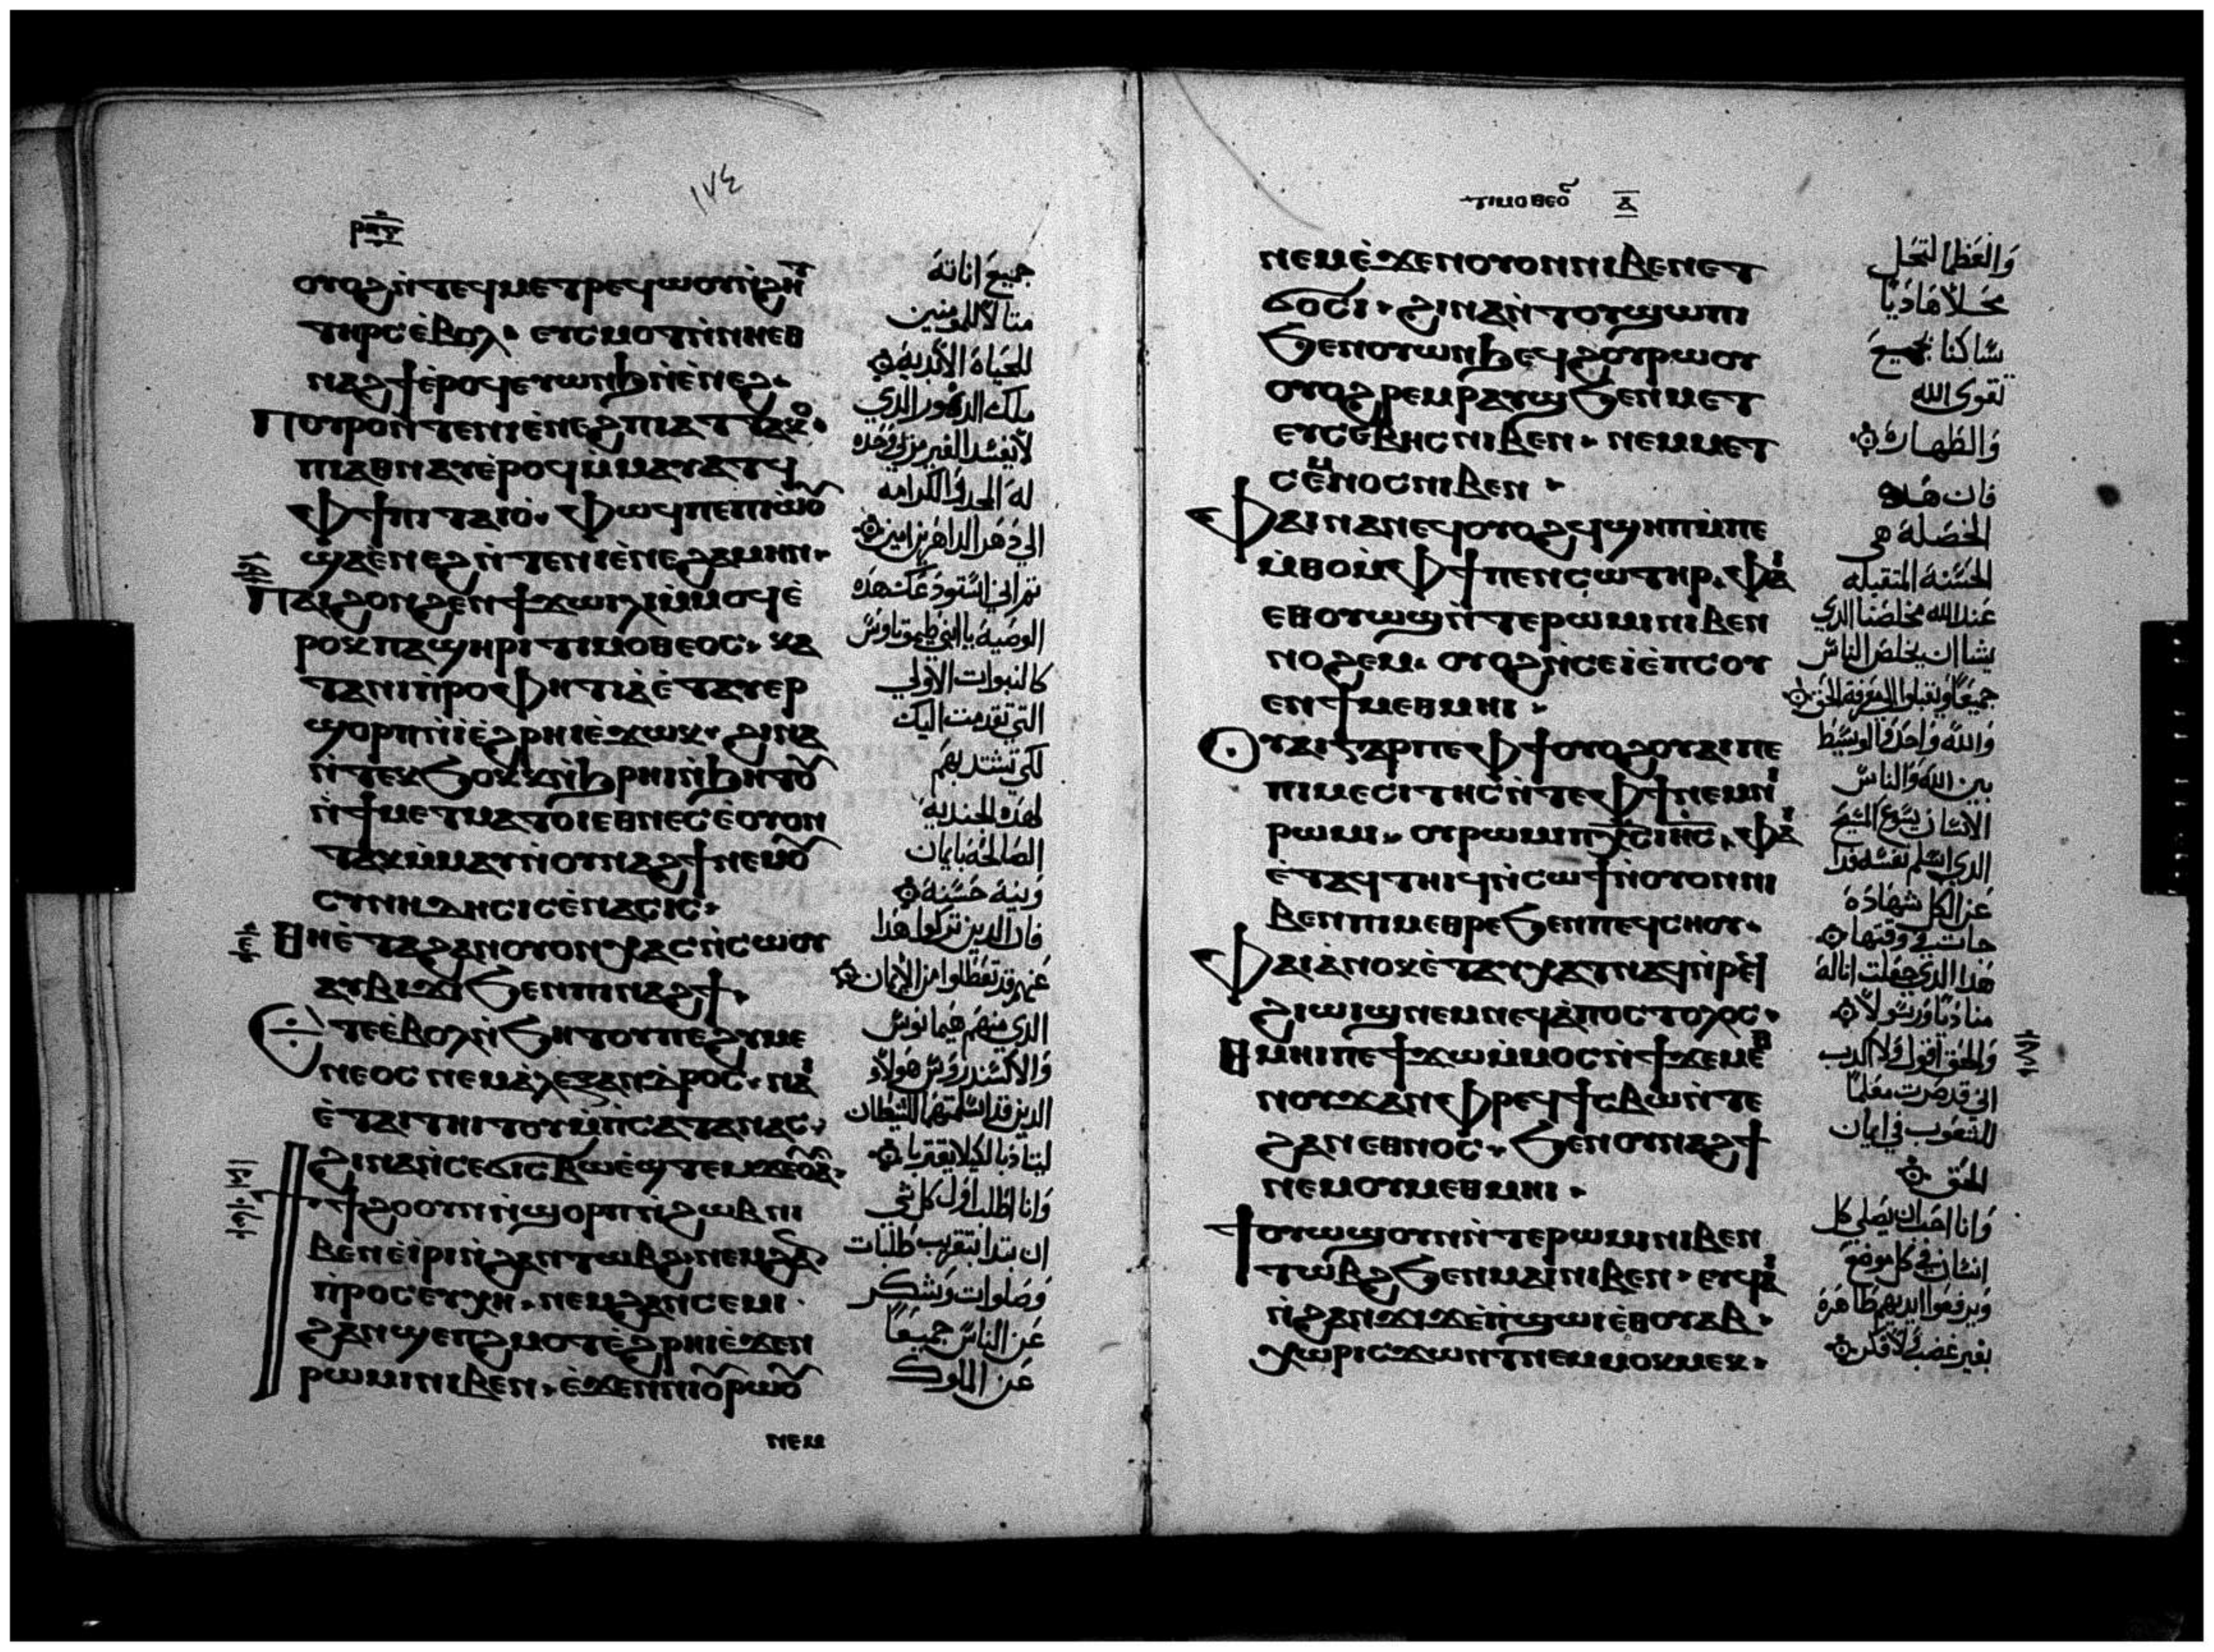 ١٧٤
ⲣⲡⲅ
ⲟⲩⲟϩⲛ̀ⲧⲉϥⲙⲉⲧⲣⲉϥⲱⲟⲩⲛ̀ϩⲏⲧ
ⲧⲏⲣⲥⲉ̀ⲃⲟⲗ· ⲉⲩⲥⲙⲟⲧⲛ̀ⲛⲏⲉⲑ
ⲛⲁϩϯⲉ̀ⲣⲟϥⲉⲩⲱⲛϧⲛ̀ⲉ̀ⲛⲉϩ·
Ⲡⲟⲩⲣⲟⲛ̀ⲧⲉⲛⲓⲉ̀ⲛⲉϩⲡⲓⲁⲧⲧⲁⲕⲟ·
ⲡⲓⲁⲑⲛⲁⲩⲉ̀ⲣⲟϥⲙ̀ⲙⲁⲩⲁⲧϥ
ⲫϯⲡⲓⲧⲁⲓⲟ̀· ⲫⲱϥⲡⲉⲡⲓⲱ̀ⲟⲩ
ϣⲁⲉ̀ⲛⲉϩⲛ̀ⲧⲉⲛⲓⲉ̀ⲛⲉϩⲁⲙⲏⲛ·
Ⲡⲁⲓϩⲟⲛϩⲉⲛϯⲭⲱⲛ̀ⲗⲓⲙ̀ⲙⲟϥⲉ̀
ⲣⲟⲕⲡⲁϣⲏⲣⲓⲧⲓⲙⲟⲑⲉⲟⲥ· ⲕⲁ
ⲧⲁⲛⲓⲡ̀ⲣⲟⲫⲏⲧⲓⲁ̀ⲉ̀ⲧⲁⲩⲉⲣ
ϣⲟⲣⲡⲛ̀ⲓ̀ⲉ̀ϩⲣⲏⲓⲉ̀ϫⲱⲕ· ϩⲓⲛⲁ
ⲛ̀ⲧⲉⲕϭⲟⲕⲕⲛ̀ϧⲣⲏⲓⲛ̀ϧⲏⲧⲟⲩ
ⲛ̀ϯⲙⲉⲧⲙⲁⲧⲟⲓⲉⲑⲛⲉⲥⲉ̀ⲟⲩⲟⲛ
ⲧⲁⲕⲙ̀ⲙⲁⲩⲛ̀ⲟⲩⲛⲁϩϯⲛⲉⲙⲟⲩ
ⲥⲩⲛⲏⲇⲏⲥⲓⲥⲉ̀ⲛⲁⲥⲓⲥ·
Ⲑⲏⲉ̀ⲧⲁϩⲁⲛⲟⲩⲟⲛⲭⲁⲥⲛ̀ⲥⲱⲟⲩ
ⲁⲩⲃⲓϫⲓϭⲉⲛⲡⲓⲛⲁϩϯ·
Ⲉⲧⲉⲉ̀ⲃⲟⲗⲛ̀ϭⲏⲧⲟⲩⲡⲉϩⲩⲙⲉ
ⲛⲉⲟⲥ ⲛⲉⲙⲁ̀ⲗⲉⲝⲁⲛⲇⲣⲟⲥ· ⲛⲁⲓ
ⲉ̀ⲧⲁⲓⲧⲏⲓⲧⲟⲩⲙ̀ⲡⲥⲁⲧⲁⲛⲁⲥ·
ϩⲓⲛⲁⲛ̀ⲥⲉϭⲓⲥⲃⲱⲉ̀ϣⲧⲉⲙϫⲉⲟⲩⲁ̀·
Ϯϯϩⲟⲟⲩⲛⲛ̀ϣⲟⲣⲡⲛ̀ϩⲱⲃⲛⲓ
ⲃⲉⲛⲉ̀ⲓⲣⲓⲛ̀ϩⲁⲛⲧⲱⲃϩ·ⲛⲉⲙϩⲁⲛ
ⲡ̀ⲣⲟⲥⲉⲩⲭⲏ·ⲛⲉⲙϩⲁⲛⲥⲉⲙⲓ·
ϩⲁⲛϣⲉⲡϩⲙⲟⲧⲉ̀ϩⲣⲏⲓⲉ̀ϫⲉⲛ
ⲣⲱⲙⲓⲛⲓⲃⲉⲛ· ⲉ̀ϫⲉⲛⲛⲓⲟⲩⲣⲱⲟⲩ
ⲛⲉⲙ
جميع اناته
مثالا للمومنين
للحياة الابدية
ملك الدهور الذي
لا يفسد الغير مرىي وحده
له المجد والكرامه
الي دهر الداهرين امين
ثم اني استودعك هذه
الوصية يا ابني طيموثاوس
كالنبوات الاولي
التي تقدمت اليك
لكي تشتد بهم
لهذه الجندية
الصالحة بايمان
وبنية حسنة
فان الذين تركوا هذا
عنهم قد تعطلوا من الايمان
الذي منهم هيمانوس
والاكسندروس هولاء
الذين قد اسلمتهما للشيطان
ليتادبا لكيلا يفتريا
وانا اطلب اول كل شي
ان تبدا بتقريب طلبات
وصلوات وشكر
عن الناس جميعا
عن الملوك
ⲧⲓⲙⲟⲑⲉⲟ ⲁ̅
ⲛⲉⲙⲉ̀ϫⲉⲛⲟⲩⲟⲛⲛⲓⲃⲉⲛⲉⲧ
ϭⲟⲥⲓ· ϩⲓⲛⲁⲛ̀ⲧⲟⲩϣⲱⲡⲓ
ϭⲉⲛⲟⲩⲱⲛϧⲉϥϩⲟⲩⲣⲱⲟⲩ
ⲟⲩⲟϩⲣⲉⲙⲣⲁⲩϣϭⲉⲛⲙⲉⲧ
ⲉⲩⲥⲉⲃⲏⲥⲛⲓⲃⲉⲛ· ⲛⲉⲙⲙⲉⲧ
ⲥⲉⲙⲛⲟⲥⲛⲓⲃⲉⲛ·
Ⲫⲁⲓⲛⲁⲛⲉϥⲟⲩⲟϩϥϣⲏⲡⲙ̀ⲡⲉ
ⲙ̀ⲑⲟⲙ̀ⲫϯⲡⲉⲛⲥⲱⲧⲏⲣ· ⲫⲁⲓ
ⲉⲑⲟⲩⲱϣⲛ̀ⲧⲉⲣⲱⲙⲓⲛⲓⲃⲉⲛ
ⲛⲟϩⲉⲙ· ⲟⲩⲟϩⲛ̀ⲥⲉⲓ̀ⲉ̀ⲡⲥⲟⲩ
ⲉⲛϯⲙⲉⲑⲙⲏⲓ·
Ⲟⲩⲁⲓⲅⲁⲣⲡⲉⲫϯⲟⲩⲟϩⲟⲩⲁⲓⲡⲉ
ⲡⲓⲙⲉⲥⲓⲧⲏⲥⲛ̀ⲧⲉⲫϯⲛⲉⲙⲛⲓ
ⲣⲱⲙⲓ· ⲟⲩⲣⲱⲙⲓⲡⲭⲥⲓⲏⲥ· ⲫⲁⲓ
ⲉ̀ⲧⲁϥⲧⲏⲓϥⲛ̀ⲥⲱϯⲛ̀ⲟⲩⲟⲛⲛⲓ
ⲃⲉⲛⲡⲓⲙⲉⲑⲣⲉϭⲉⲛⲡⲉϥⲥⲏⲟⲩ·
Ⲫⲁⲓⲁ̀ⲛⲟⲕⲉ̀ⲧⲁⲩⲭⲁⲧⲛⲁϥⲛ̀ⲣⲉϥ
ϩⲓⲱⲓϣⲛⲉⲙⲛⲉϥⲁ̀ⲡⲟⲥⲧⲟⲗⲟⲥ·
Ⲑⲙⲏⲓⲡⲉϯϫⲱⲙ̀ⲙⲟⲥⲛ̀ϯϫⲉⲙⲉⲑ
ⲛⲟⲩϫⲁⲛⲫⲣⲉϥϯⲥⲃⲱⲛ̀ⲧⲉ
ϩⲁⲛⲉⲑⲛⲟⲥ· ϭⲉⲛⲟⲩⲛⲁϩϯ
ⲛⲉⲙⲟⲩⲙⲉⲑⲙⲏⲓ·
Ϯⲟⲩⲱϣⲟⲩⲛⲛ̀ⲧⲉⲣⲱⲙⲓⲛⲓⲃⲉⲛ
ⲧⲱⲃϩϭⲉⲛⲙⲁⲓⲛⲓⲃⲉⲛ· ⲉⲩϥⲁⲓ
ⲛ̀ϩⲁⲛϫⲓϫⲉ̀ⲡ̀ϣⲱⲓⲉⲑⲟⲩⲁⲃ·
ⲭⲱⲣⲓⲥϫⲱⲛⲧⲛⲉⲙⲙⲟⲕⲙⲉⲕ·
والعظما لتحل
محلا هاديا
ساكنا بجميع
تقوي الله
والطهارة
فان هذه
الخصلة هي
الحسنة المتقبله
عند الله مخلصنا الذي
يشا ان يخلص الناس
جميعا ويقبلوا الي معرفة الحق
والله واحد والوسيط
بين الله والناس
الانسان يسوع المسيح
الذي اسلم نفسه فدا
عن الكل شهادة
جات في وقتها
هذا الذي جعلت انا له
مناديا ورسولا
والحق اقول ولا اكذب
اني قد صرت معلما
للشعوب في ايمان
الحق
وانا احب ان يصلي كل
انسان في كل موضع
ويرفعوا ايديهم طاهرة
بغير غضب ولا فكر